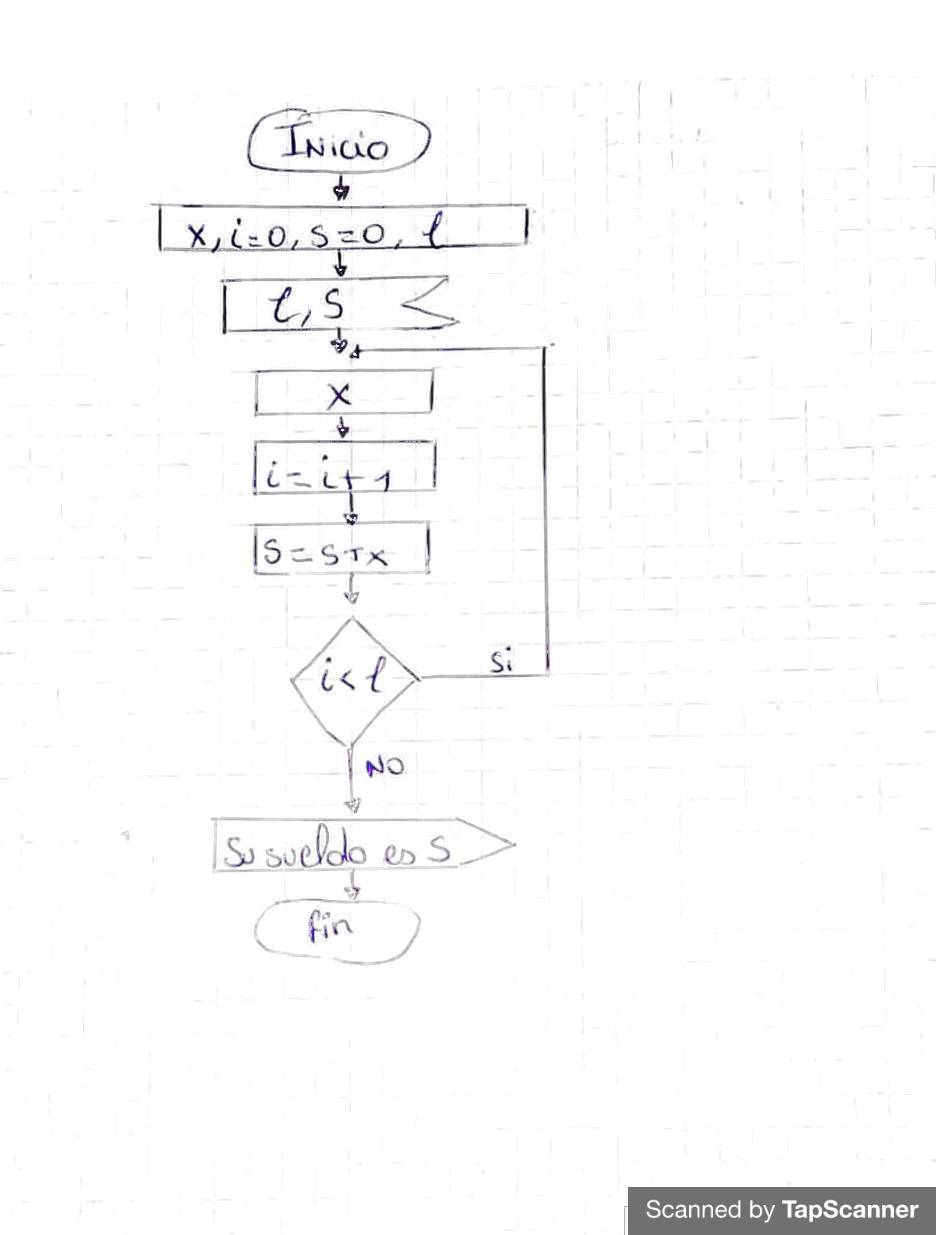 INICIO
x, i=0, s=0, l
l, S
x
i=i+1
S=S+x
i<l
Si
NO
Su sueldo es S
fin
Scanned by TapScanner